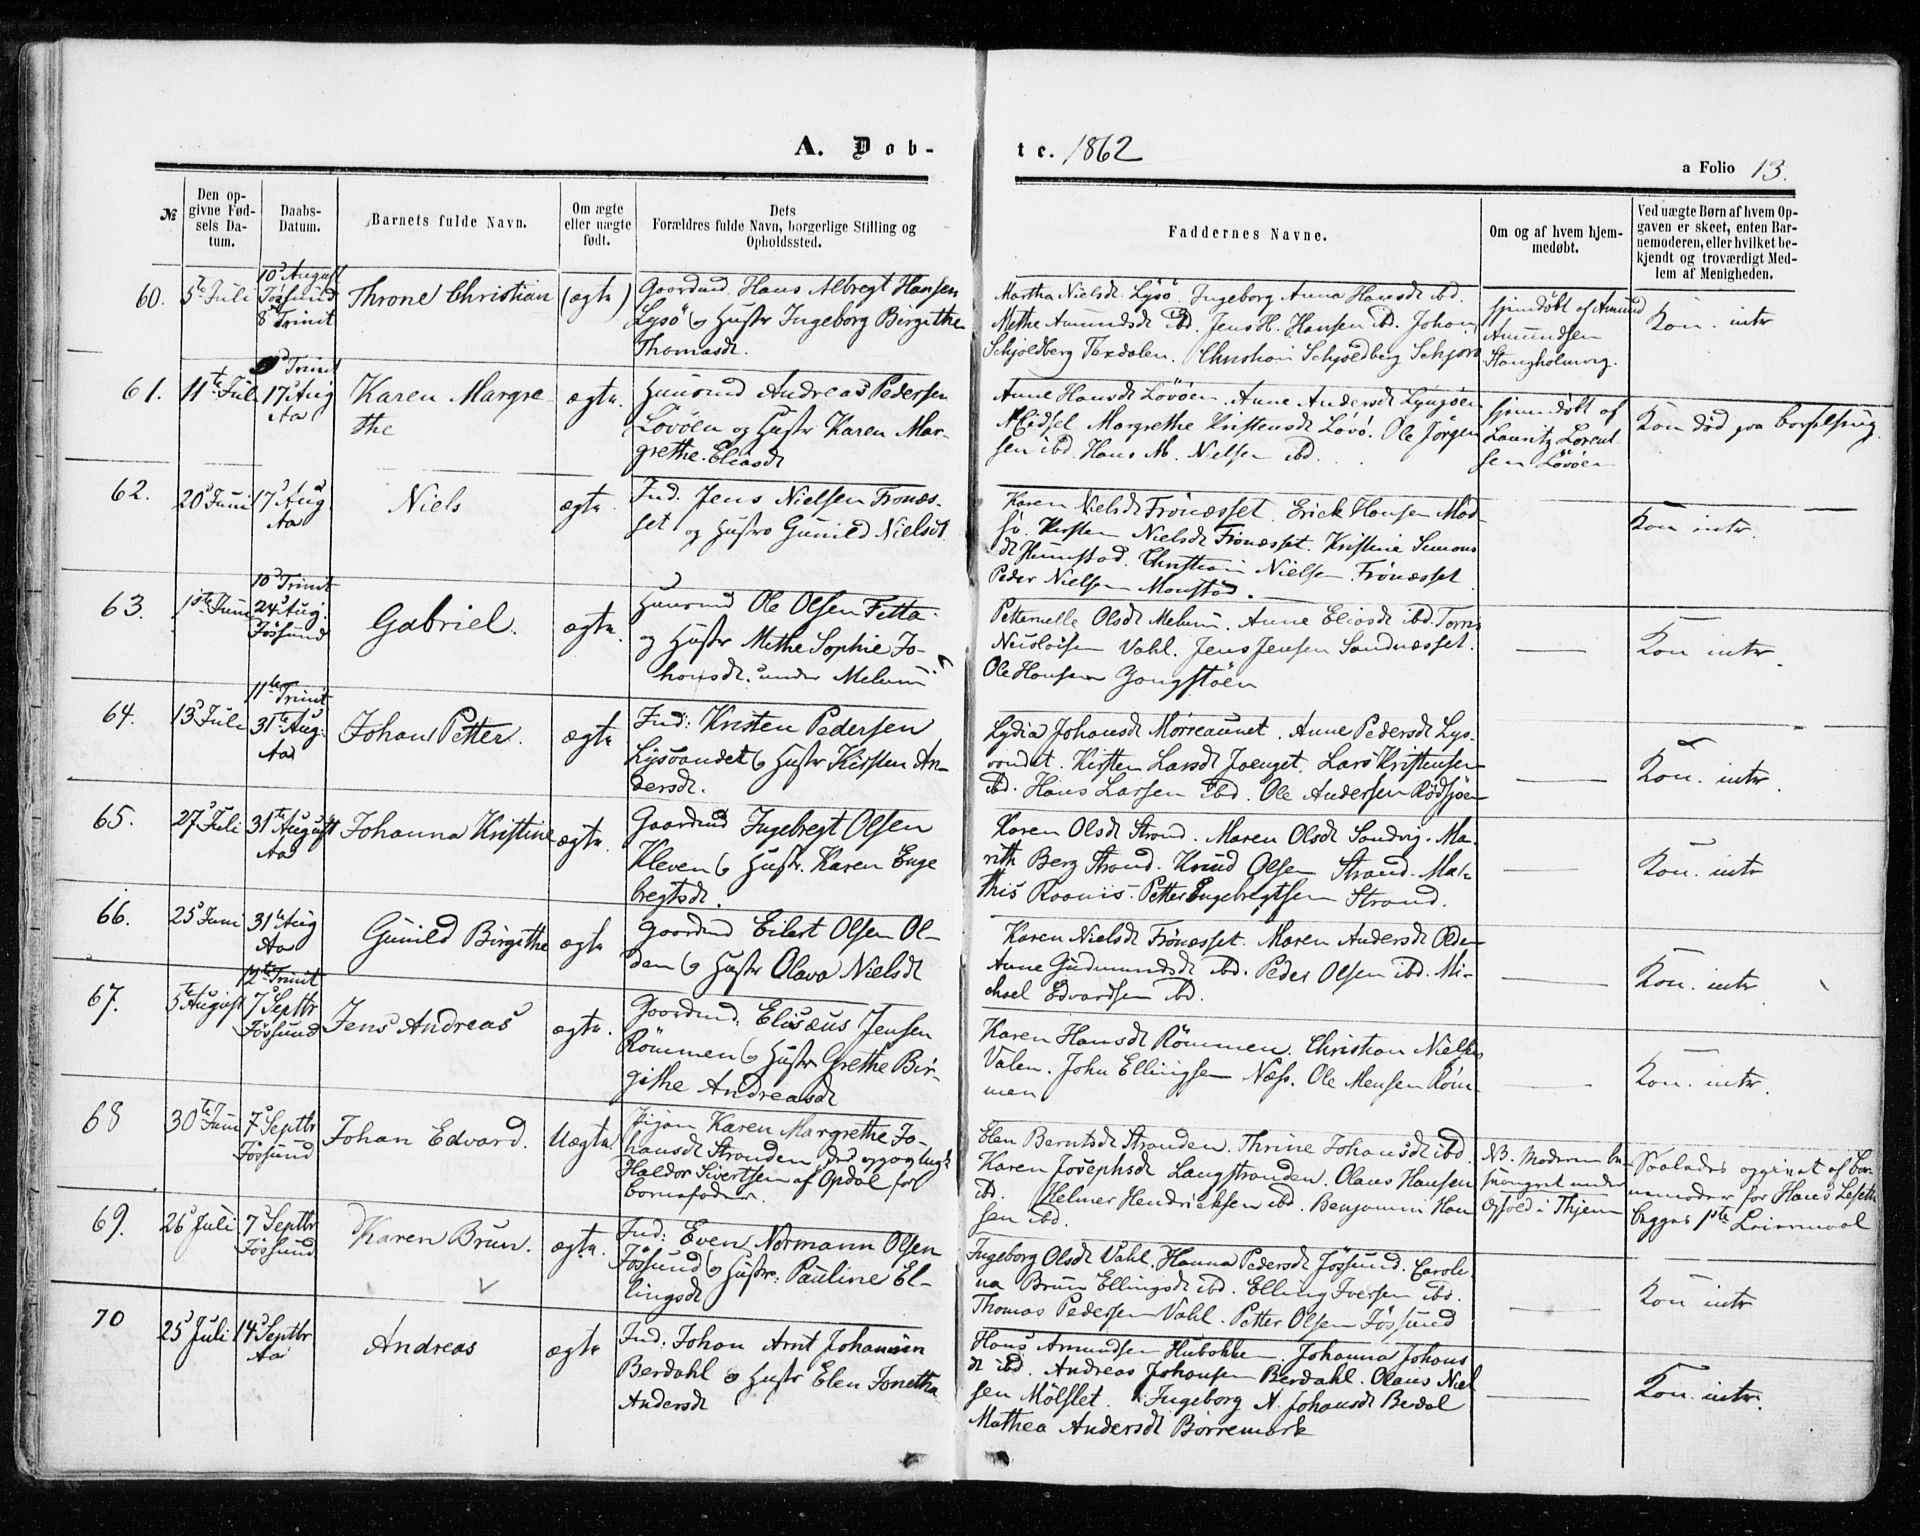 A. Dob-
te. 1862
a Folio 13.
№
Den op-
givne Fød-
sels Da-
tum.
Daabs-
Datum.
Barnets fulde Navn.
Om ægte
eller uægte
født.
Dets
Forældres fulde Navn, borgerlige Stilling og
Opholdssted.
Faddernes Navne.
Om og af hvem hjem-
medøbt.
Ved uægte Børn af hvem Op-
gaven er skeet, enten Bar-
nemoderen, eller hvilket be-
kjendt og troværdigt Med-
lem af Menigheden.
60.
5te Juli
10d August
Jøssund
8d Trinit
Throne Christian
(ægte)
Gaardmd Hans Albregt Hansen
Lysø og Hustr Ingeborg Bergithe
Thomasdt.
Martha Nielsdt Lysø. Ingeborg Anna Hansdt ibd.
Methe Amundsdt ibd. Jens H. Hansen ibd. Johan
Schjoldberg Taxdalen. Christian Schjoldberg
hjemdøbt af Amund
Amundsen
Kon. intr
61.
11te Juli
9d Trinit
17d Aug
Aa
Karen Margre-
the
ægte.
Huusmd Andreas Pedersen
Løvøen og Hustr Karen Mar-
grethe Eliasdt
Anne Hansdt Løvøen. Anne Andersdt Lyngøen
Margrethe Kristensdt Løvø. Ole Jørgen
sen ibd. Hans M. Nielsen ibd.
hjemdøbt af
Lauritz Lorent
sen Løvøen
Kon død paa
62.
20d Juni
17d Aug
Aa
Niels
ægte.
Ind. Jens Nielsen Frønæs-
set og Hustro Gunild Nielsdt.
Karen Nielsdt Frønæsset. Erick Hansen Mad-
sø. Kirsten Nielsdt Frønæsset. Kristine Simons
dt Humstad. Christian Nielsen Frønæsset.
Peder Nielsen Monstad.
Kon. intr.
63.
1ste Juni
10d Trinit
24d Aug.
Jøssund
Gabriel.
ægte.
Huusmd Ole Olsen Fetta
og Hustr Methe Sophie Jo-
hansdt. under Melum
Petternelle Olsdt Melum. Anne Eliasdt ibd. Torris
Nicolaisen Vahl. Jens Jensen Sandnæsset.
Ole Hansen
Kon. intr.
64.
13d Juli
11te Trinit
31te Aug.
Aa
Johan Petter.
ægte
Ind: Kristen Pedersen
Lysvandet og Hustr Kirsten An-
dersdt.
Lydia Johansdt Mørreaunet. Anne Pedersdt Lys-
vandet. Kirsten Larsdt Joenget. Lars Kristensen
ibd. Hans Larsen ibd. Ole Andersen Rødsjøen
Kon. intr
65.
27d Juli
31te August
Aa
Johanna Kristine
ægte.
Gaardmd Ingebregt Olsen
Kleven og Hustr. Karen Enge
bregtsdt.
Karen Olsdt Strand. Maren Olsdt Sandvig. Ma-
rith Berg Strand. Knud Olsen Strand. Ma-
this Petter Engebregtsen Strand.
Kon. intr
66.
25d Juni
31te Aug
Aa
Gunild Birgithe
ægte
Gaardmd Eilert Olsen Ol-
den og Hustr Olava Nielsdt
Karen Nielsdt Frønæsset. Maren Andersdt Olden
Anne Gudmundsdt ibd. Peder Olsen ibd. Mi-
chael Edvardsen ibd.
Kon. intr
67.
5te August
12te Trinit
7d Septbr
Jøssund
Jens Andreas
ægte.
Gaardmd: Elisæus Jensen
Rømmen og Hustr Grethe Bir-
githe Andreasdt
Karen Hansdt Rømmen. Christian Nielsen
Valen. John Ellingsen Næss. Ole Mensen Røm-
men
Kon. intr.
68
30te Juni
7d Septbr
Jøssund
Johan Edvard.
Uægte.
Pigen Karen Margrethe Jo-
hansdt Stranden,
Haldor Sivertsen af Opdal for
barnefader.
Elen Berntsdt Stranden. Thrine Johansdt ibd.
Karen Josephsdt Langstranden. Olaus Hansen
ibd. Helmer Hendricksen ibd. Benjamin Han
sen ibd.
NB. Moderen be
svangret under
Ophold i
Saaledes opgivet af bar
nemoder for Hans
begges 1ste Leiermaal
69.
26d Juli
7d Septbr
Jøssund
Karen Brun.
ægte.
Ind: Even Normann Olsen
Jøssund og Hustr: Pauline El-
lingsdt
Ingeborg Olsdt Vahl. Hanna Pedersdt Jøssund. Caroli-
na Brun Ellingsdt ibd. Elling Iversen ibd.
Thomas Pedersen Vahl. Petter Olsen Jøssund
Kon intr
70
25d Juli
14d Septbr
Aa
Andreas
ægte
Ind: Johan Arnt Johansen
Berdahl og Hustr Elen Jonetha
Andersdt
Hans Amundsen Hubakken. Johanna Johans
dt ibd. Andreas Johansen Berdahl. Olaus Niel
sen Mølslet. Ingeborg A. Johansdt Berdal
Mathea Andersdt Børremark
Kon. intr.